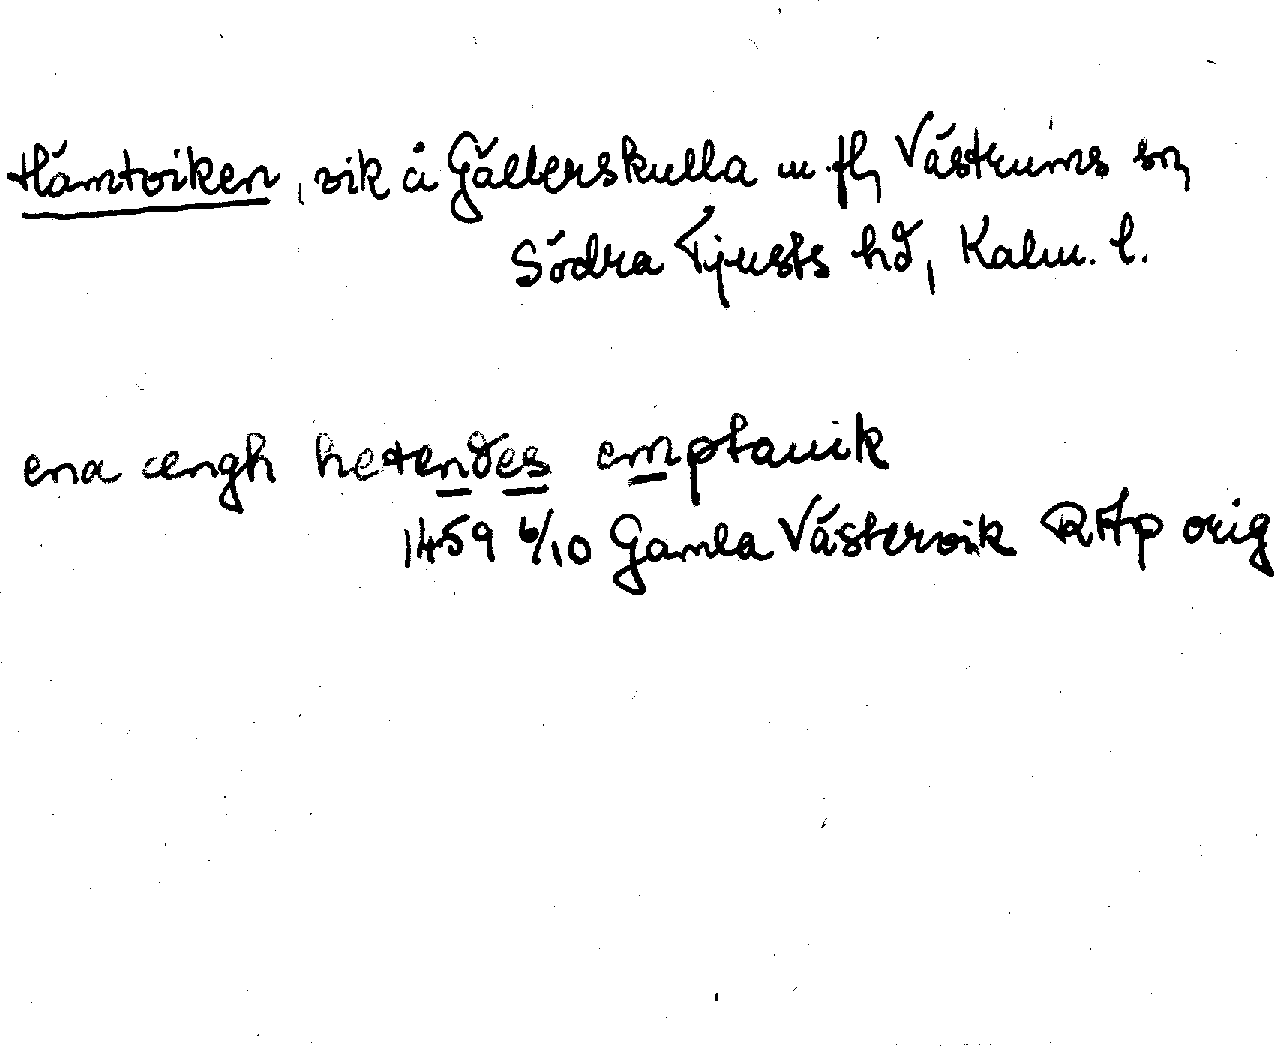 Hämtviken, vik å Gällerskulla m. fl, Västrums sn,
Södra Tjusts hd, Kalm. l.
ena ængh hetendes emptauik
1459 6/10 Gamla Västervik RAp orig